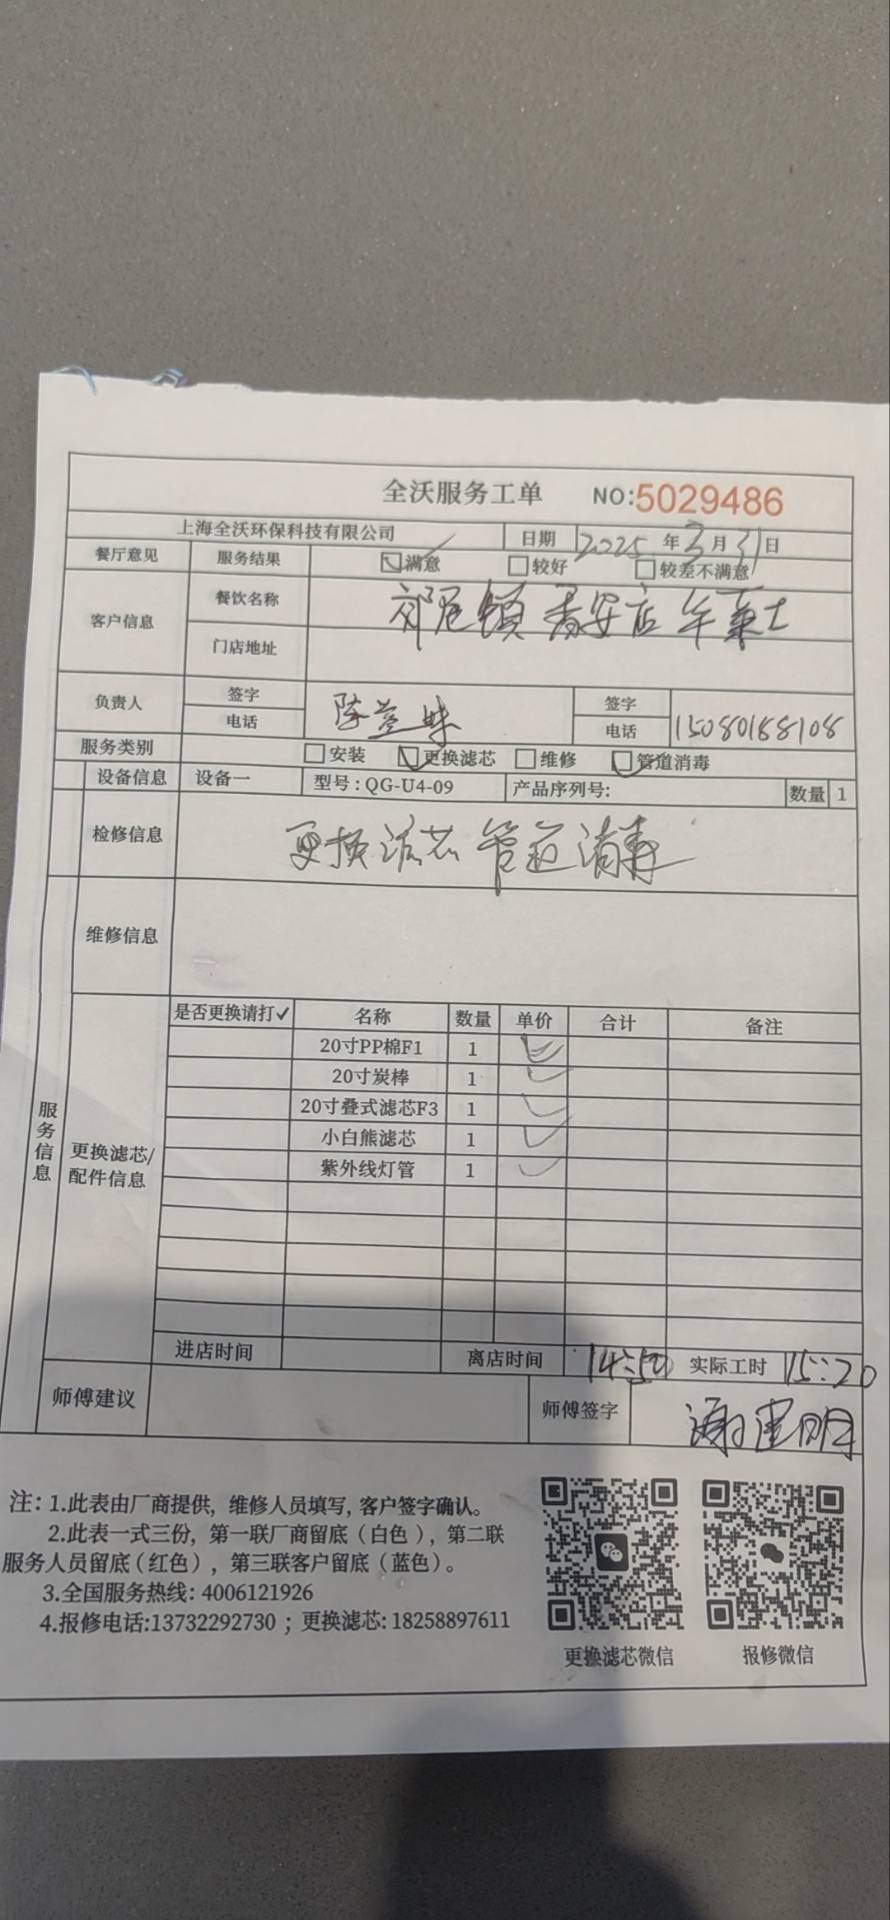 全沃服务工单 NO:5029486
上海全沃环保科技有限公司 日期 2025年3月31日
餐厅意见 服务结果 满意 较好 较差不满意
客户信息 餐饮名称
门店地址
负责人 签字 签字
电话 电话 15080188108
服务类别 安装 更换滤芯 维修 管道消毒
设备信息 设备一 型号:QG-U4-09 产品序列号: 数量 1
检修信息 更换滤芯 管道消毒
维修信息
服务信息
更换滤芯/配件信息
是否更换请打✓ 名称 数量 单价 合计 备注
20寸PP棉F1 1 ✓
20寸炭棒 1 ✓
20寸叠式滤芯F3 1 ✓
小白熊滤芯 1 ✓
紫外线灯管 1 ✓
进店时间 离店时间 14:50 实际工时 15:20
师傅建议 师傅签字
注:1.此表由厂商提供, 维修人员填写, 客户签字确认。
2.此表一式三份, 第一联厂商留底(白色), 第二联
服务人员留底(红色), 第三联客户留底(蓝色)。
3.全国服务热线: 4006121926
4.报修电话:13732292730 ; 更换滤芯: 18258897611
更换滤芯微信 报修微信